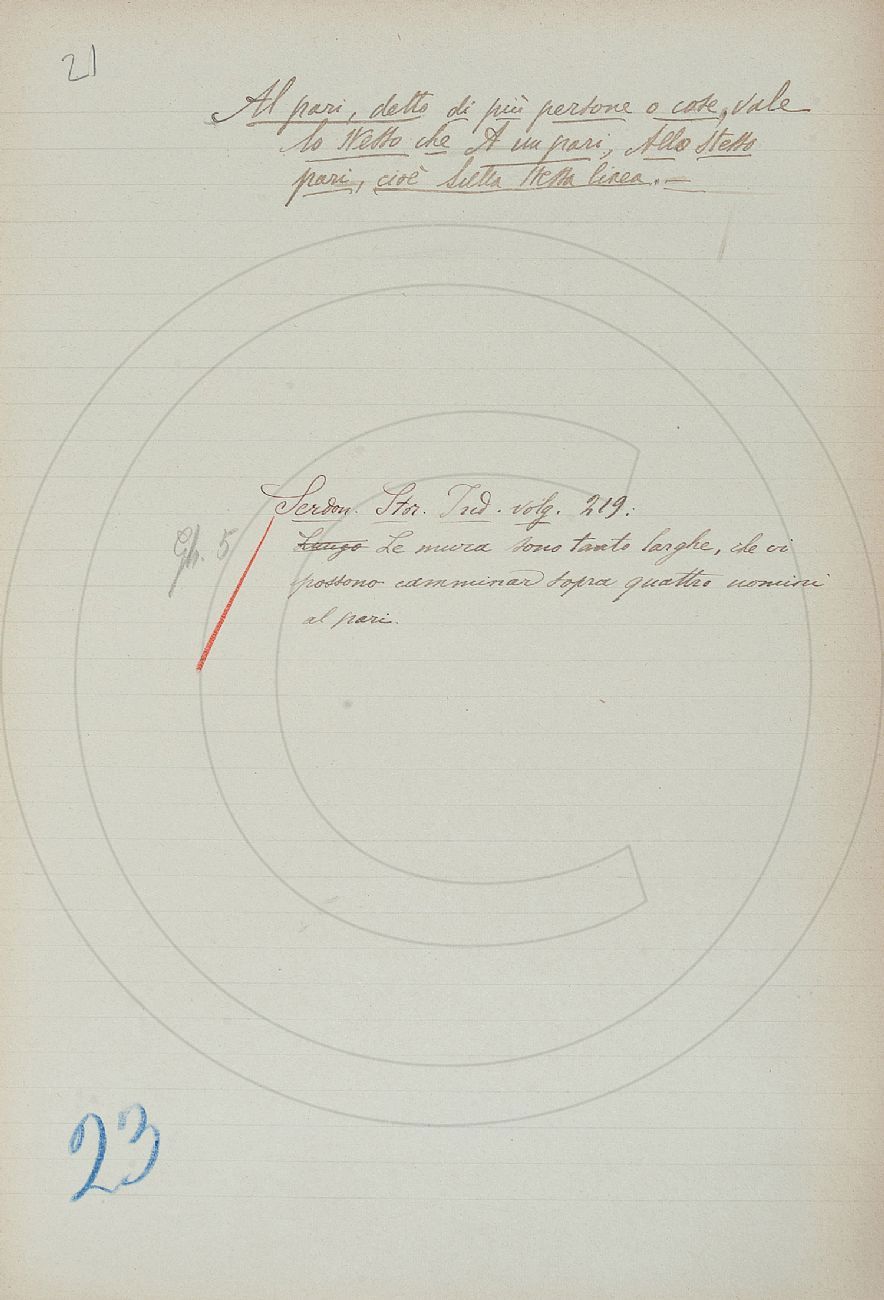 21
Al pari, detto di più persone o cose, vale
lo stesso che A un pari, Allo stesso
pari, cioè Sulla stessa linea. —
Serdon. Stor. Ind. volg. 219:
Gh. 5
Lungo Le mura sono tanto larghe, che vi
possono camminar sopra quattro uomini
al pari.
23